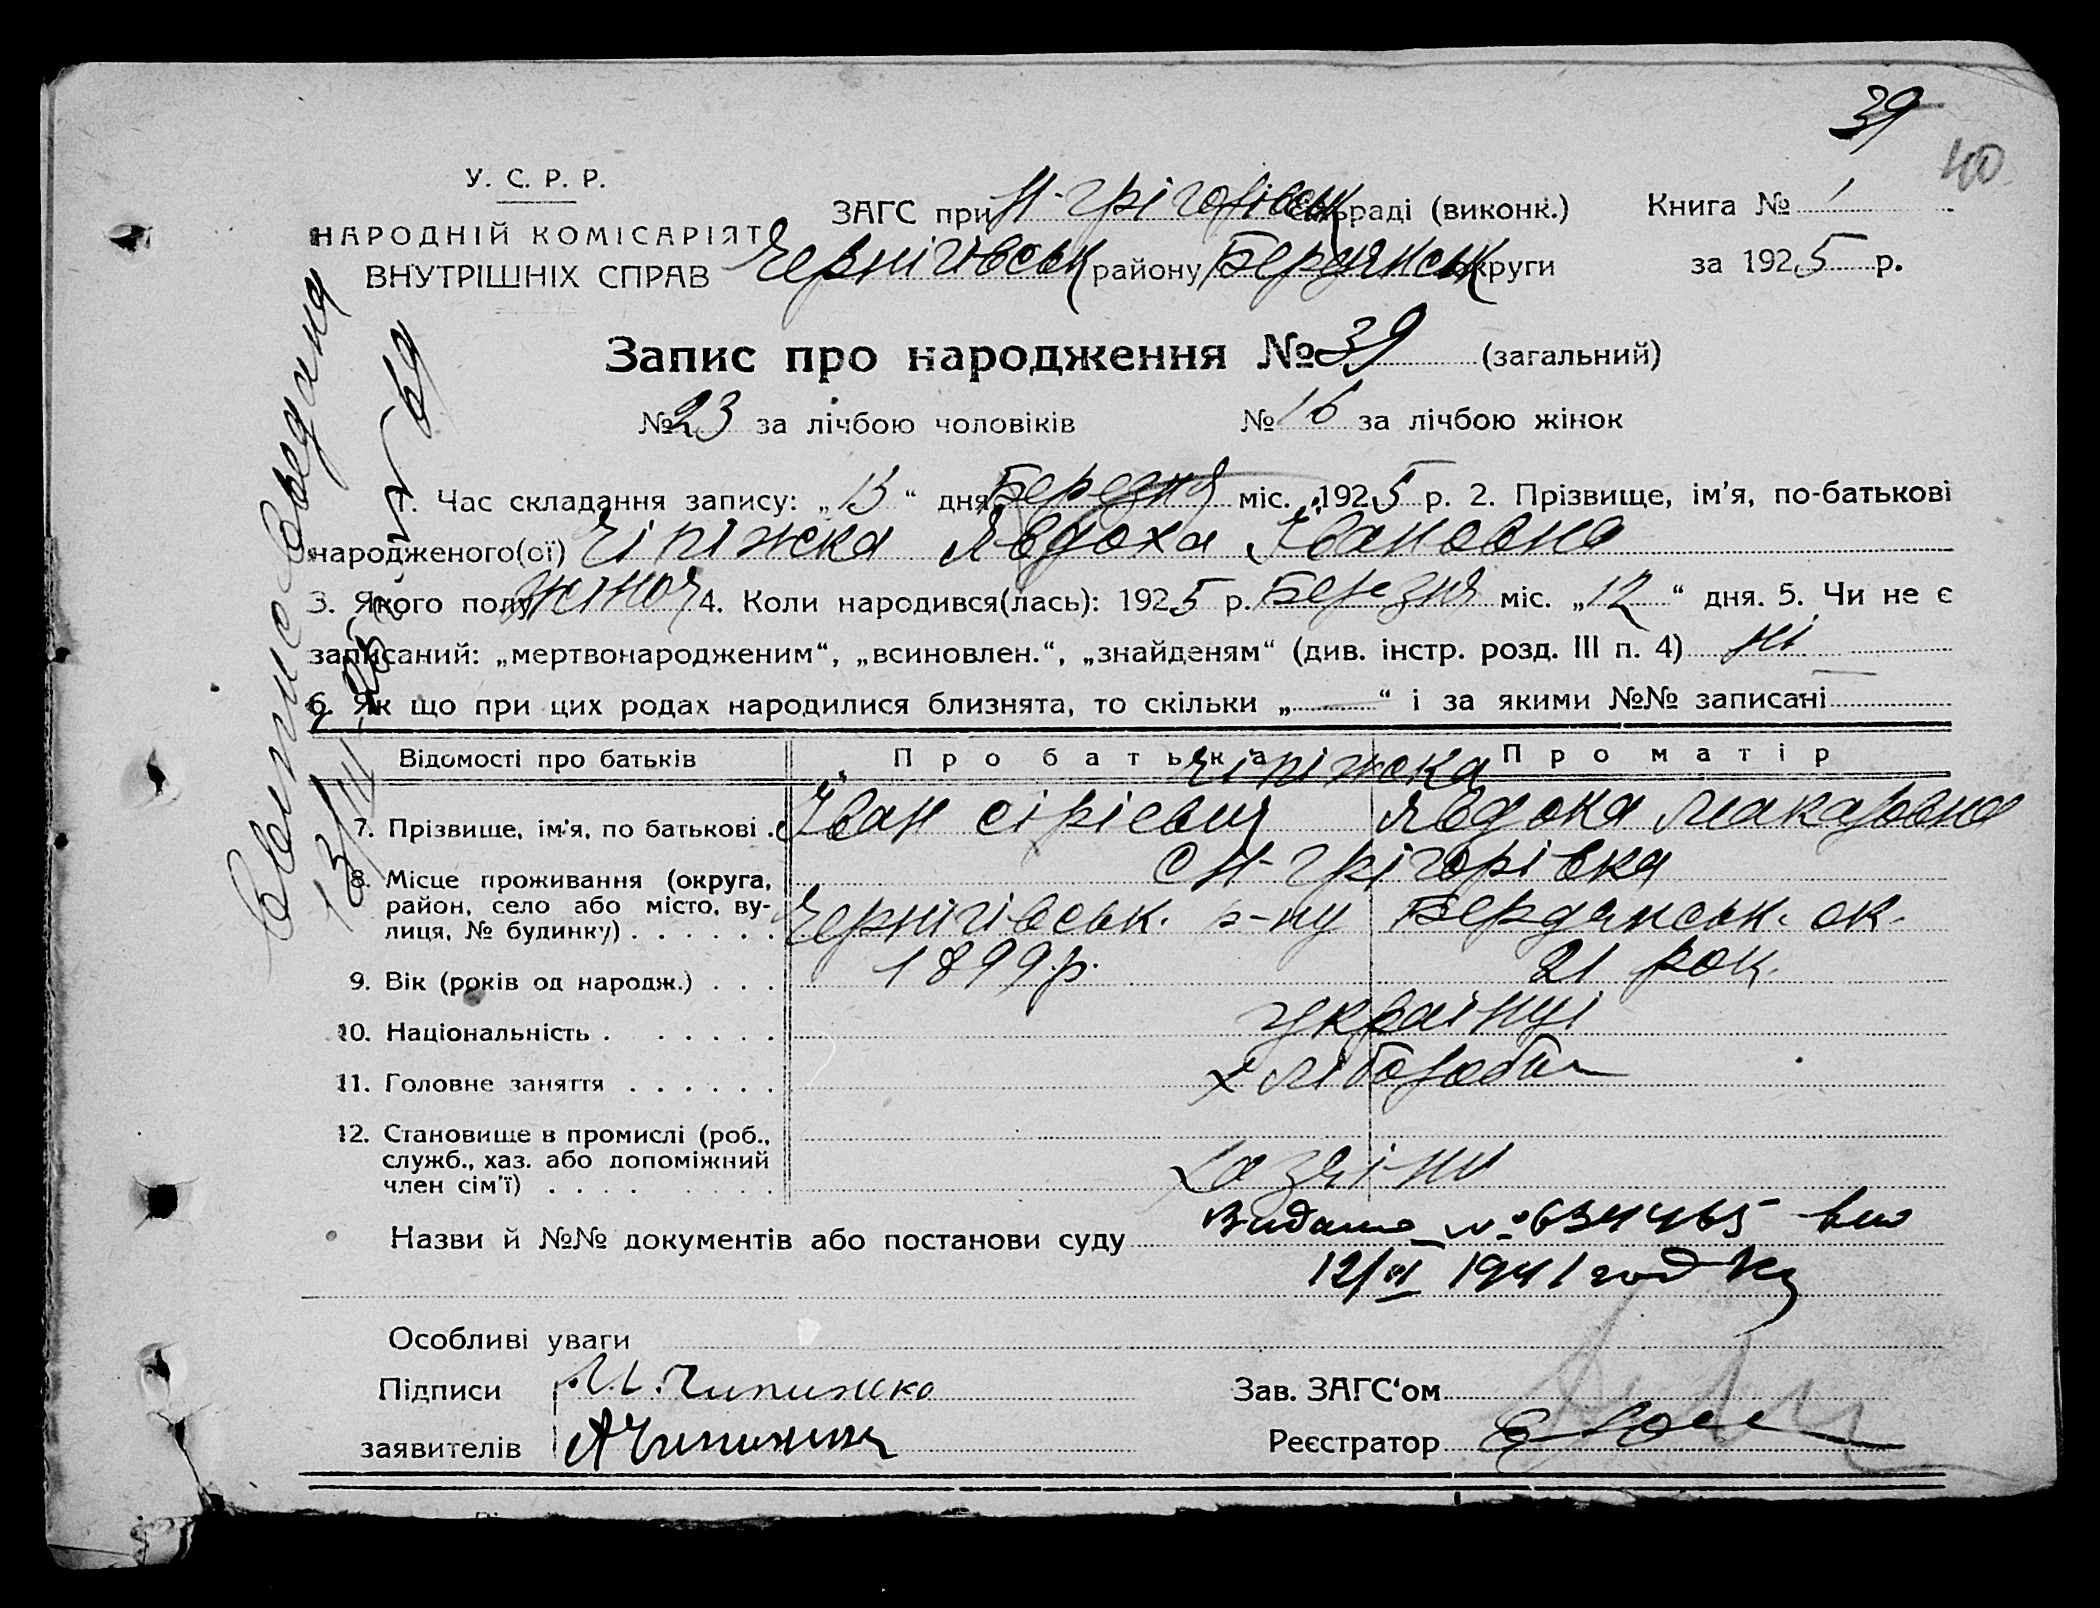 39
40
У. С. Р. Р.
НАРОДНІЙ КОМІСАРІЯТ
ВНУТРІШНІХ СПРАВ
ЗАГС при Н-Грігорівськ сельраді (виконк.)
Книга № 1
Чернігівськ району Бердянськ округи
за 1925 р.
Запис про народження № 39 (загальний)
№ 23 за лічбою чоловіків № 16 за лічбою жінок
1. Час складання запису: „13“ дня Березня міс. 1925 р. 2. Прізвище, ім'я, по-батькові
народженого(ої) Чіпіжка Явдоха Івановна
3. Якого полу жіноч 4. Коли народився(лась): 1925 р. Березня міс. „12“ дня. 5. Чи не є
записаний: „мертвонародженим“, „всиновлен.“, „знайденям“ (див. інстр. розд. III п. 4) ні
6. Як що при цих родах народилися близнята, то скільки „—“ і за якими №№ записані
Відомості про батьків Про батька Про матір
Чіпіжка
7. Прізвище, ім'я, по батькові . Іван Явдока Макаровна
8. Місце проживання (округа, район, село або місто, вулиця, № будинку) . . . . . . с Н-Грігорівка
Чернігівськ. р-ну Бердянськ. ок.
9. Вік (років од народж.) . . . 1899 р. 21 рок.
10. Національність . . . . . . українці
11. Головне заняття . . . . . . хлібороби
12. Становище в промислі (роб., служб., хаз. або допоміжний член сім'ї) . . . . . . . . хазяіни
Назви й №№ документів або постанови суду Видано № 634465
12/VI 1941 год
Особливі уваги
Підписи Чипижко
заявителів
Зав. ЗАГС'ом
Реєстратор
Выпис Выдана